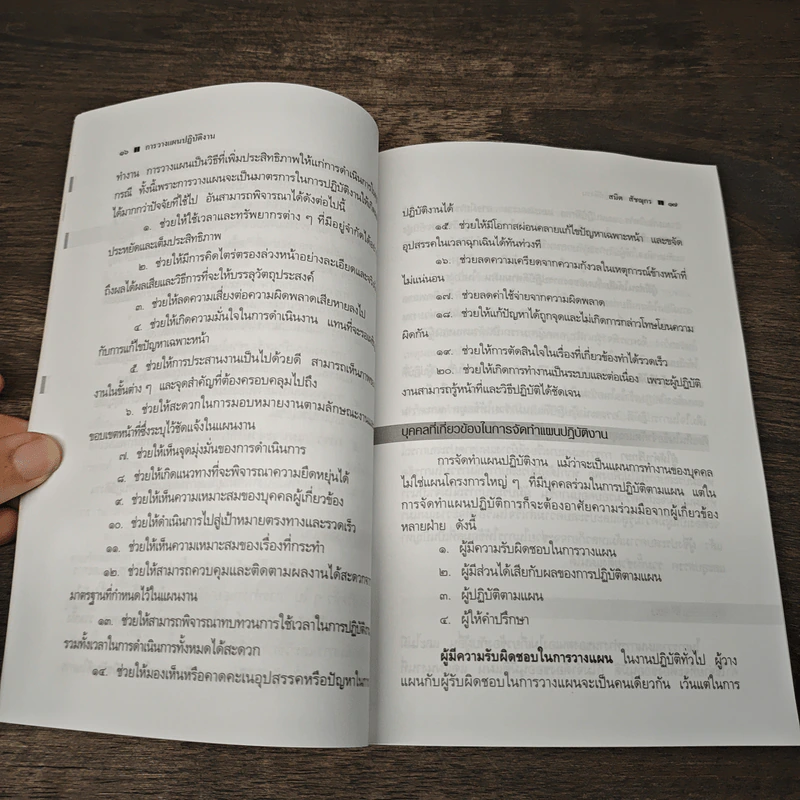 ๑๖ ■ การวางแผนปฏิบัติงาน
ทำงาน การวางแผนเป็นวิธีที่เพิ่มประสิทธิภาพให้แก่การดำเนินการ
กรณี ทั้งนี้เพราะการวางแผนจะเป็นมาตรการในการปฏิบัติงานให้
ได้มากกว่าปัจจัยที่ใช้ไป อันสามารถพิจารณาได้ดังต่อไปนี้
๑. ช่วยให้ใช้เวลาและทรัพยากรต่าง ๆ ที่มีอยู่จำกัดได้
ประหยัดและเต็มประสิทธิภาพ
๒. ช่วยให้มีการคิดไตร่ตรองล่วงหน้าอย่างละเอียดและ
ถึงผลได้ผลเสียและวิธีการที่จะให้บรรลุวัตถุประสงค์
๓. ช่วยให้ลดความเสี่ยงต่อความผิดพลาดเสียหายลงไป
๔. ช่วยให้เกิดความมั่นใจในการดำเนินงาน แทนที่จะรอ
กับการแก้ไขปัญหาเฉพาะหน้า
๕. ช่วยให้การประสานงานเป็นไปด้วยดี สามารถเห็นภาพ
งานในขั้นต่าง ๆ และจุดสำคัญที่ต้องครอบคลุมไปถึง
๖. ช่วยให้สะดวกในการมอบหมายงานตามลักษณะงาน
ขอบเขตหน้าที่ซึ่งระบุไว้ชัดแจ้งในแผนงาน
๗. ช่วยให้เห็นจุดมุ่งมั่นของการดำเนินการ
๘. ช่วยให้เกิดแนวทางที่จะพิจารณาความยืดหยุ่นได้
๙. ช่วยให้เห็นความเหมาะสมของบุคคลผู้เกี่ยวข้อง
๑๐. ช่วยให้ดำเนินการไปสู่เป้าหมายตรงทางและรวดเร็ว
๑๑. ช่วยให้เห็นความเหมาะสมของเรื่องที่กระทำ
๑๒. ช่วยให้สามารถควบคุมและติดตามผลงานได้สะดวก
มาตรฐานที่กำหนดไว้ในแผนงาน
๑๓. ช่วยให้สามารถพิจารณาทบทวนการใช้เวลาในการปฏิบัติ
รวมทั้งเวลาในการดำเนินการทั้งหมดได้สะดวก
๑๔. ช่วยให้มองเห็นหรือคาดคะเนอุปสรรคหรือปัญหาใน
สมิต สัชฌุกร ■ ๑๗
ปฏิบัติงานได้
๑๕. ช่วยให้มีโอกาสผ่อนคลายแก้ไขปัญหาเฉพาะหน้า และขจัด
อุปสรรคในเวลาฉุกเฉินได้ทันท่วงที
๑๖. ช่วยลดความเครียดจากความกังวลในเหตุการณ์ข้างหน้าที่
ไม่แน่นอน
๑๗. ช่วยลดค่าใช้จ่ายจากความผิดพลาด
๑๘. ช่วยให้แก้ปัญหาได้ถูกจุดและไม่เกิดการกล่าวโทษโยนความ
ผิดกัน
๑๙. ช่วยให้การตัดสินใจในเรื่องที่เกี่ยวข้องทำได้รวดเร็ว
๒๐. ช่วยให้เกิดการทำงานเป็นระบบและต่อเนื่อง เพราะผู้ปฏิบัติ
งานสามารถรู้หน้าที่และวิธีปฏิบัติได้ชัดเจน
บุคคลที่เกี่ยวข้องในการจัดทำแผนปฏิบัติงาน
การจัดทำแผนปฏิบัติงาน แม้ว่าจะเป็นแผนการทำงานของบุคคล
ไม่ใช่แผนโครงการใหญ่ ๆ ที่มีบุคคลร่วมในการปฏิบัติตามแผน แต่ใน
การจัดทำแผนปฏิบัติการก็จะต้องอาศัยความร่วมมือจากผู้เกี่ยวข้อง
หลายฝ่าย ดังนี้
๑. ผู้มีความรับผิดชอบในการวางแผน
๒. ผู้มีส่วนได้เสียกับผลของการปฏิบัติตามแผน
๓. ผู้ปฏิบัติตามแผน
๔. ผู้ให้คำปรึกษา
ผู้มีความรับผิดชอบในการวางแผน ในงานปฏิบัติทั่วไป ผู้วาง
แผนกับผู้รับผิดชอบในการวางแผนจะเป็นคนเดียวกัน เว้นแต่ในการ